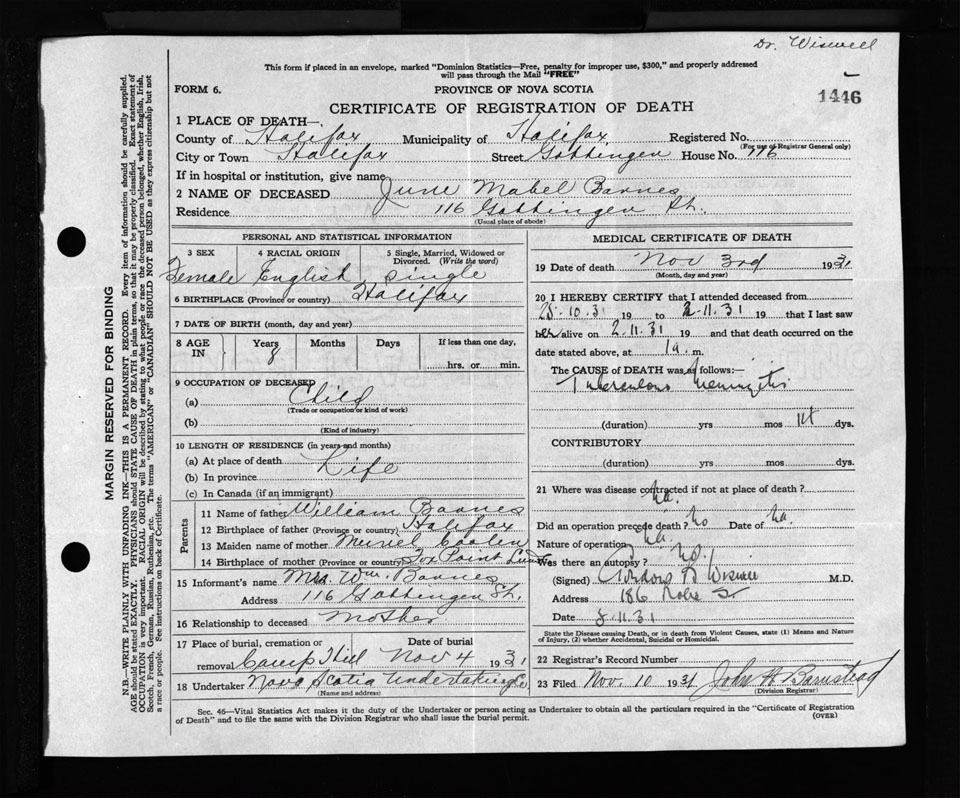 Dr. Wiswell
This form if placed in an envelope, marked "Dominion Statistics—Free, penalty for improper use, $300," and properly addressed
will pass through the Mail "FREE"
FORM 6.
PROVINCE OF NOVA SCOTIA
1446
CERTIFICATE OF REGISTRATION OF DEATH
1 PLACE OF DEATH—
County of Halifax Municipality of Halifax Registered No.
(For use of Registrar General only)
City or Town Halifax Street Gottingen House No. 116
If in hospital or institution, give name
2 NAME OF DECEASED June Mabel Barnes
Residence 116 Gottingen St.
(Usual place of abode)
PERSONAL AND STATISTICAL INFORMATION
3 SEX 4 RACIAL ORIGIN 5 Single, Married, Widowed or
Divorced. (Write the word)
Female English Single
6 BIRTHPLACE (Province or country) Halifax
7 DATE OF BIRTH (month, day and year)
8 AGE IN Years Months Days If less than one day,
8 hrs. or min.
9 OCCUPATION OF DECEASED
(a) Child
(Trade or occupation or kind of work)
(b)
(Kind of industry)
10 LENGTH OF RESIDENCE (in years and months)
(a) At place of death Life
(b) In province
(c) In Canada (if an immigrant)
Parents
11 Name of father William Barnes
12 Birthplace of father (Province or country) Halifax
13 Maiden name of mother Muriel Coolen
14 Birthplace of mother (Province or country) Fox Point Lun
15 Informant's name Mrs. Wm. Barnes
Address 116 Gottingen St.
16 Relationship to deceased Mother
17 Place of burial, cremation or removal Date of burial
Camp Hill Nov 4 1931
18 Undertaker Nova Scotia Undertaking Co.
(Name and address)
MEDICAL CERTIFICATE OF DEATH
19 Date of death Nov 3rd 1931
(Month, day and year)
20 I HEREBY CERTIFY that I attended deceased from
25.10.31 19 to 2.11.31 19 that I last saw
her alive on 2.11.31 19 and that death occurred on the
date stated above, at 1 a. m.
The CAUSE of DEATH was as follows:—
Tuberculous Meningitis
(duration) yrs mos 14 dys.
CONTRIBUTORY
(duration) yrs mos dys.
21 Where was disease contracted if not at place of death?
na.
Did an operation precede death? no Date of na.
Nature of operation na.
Was there an autopsy? no.
(Signed) Gordon B Wiswell M.D.
Address 186 Robie St
Date 8.11.31
State the Disease causing Death, or in death from Violent Causes, state (1) Means and Nature
of Injury, (2) whether Accidental, Suicidal or Homicidal.
22 Registrar's Record Number
23 Filed Nov. 10 1931 John H Barnstead
(Division Registrar)
Sec. 46—Vital Statistics Act makes it the duty of the Undertaker or person acting as Undertaker to obtain all the particulars required in the "Certificate of Registration
of Death" and to file the same with the Division Registrar who shall issue the burial permit.
(OVER)
MARGIN RESERVED FOR BINDING
N.B.—WRITE PLAINLY WITH UNFADING INK—THIS IS A PERMANENT RECORD. Every item of information should be carefully supplied.
AGE should be stated EXACTLY. PHYSICIANS should STATE CAUSE OF DEATH in plain terms, so that it may be properly classified. Exact statement of
OCCUPATION is very important. RACIAL ORIGIN will be described by stating to what people or race the deceased person belonged, whether English, Irish,
Scotch, French, German, Russian, Ruthenian, etc. The terms "AMERICAN" or "CANADIAN" SHOULD NOT BE USED as they express citizenship but not
a race or people. See instructions on back of Certificate.